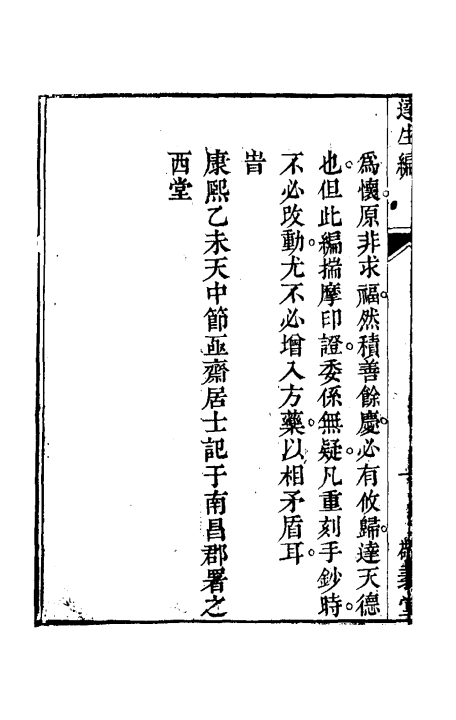 達生編
為懷原非求福然積善餘慶必有攸歸達天德
也但此編揣摩印證委係無疑凡重刻手鈔時
不必改動尤不必增入方藥以相矛盾耳
旹
康熙乙未天中節亟齋居士記于南昌郡署之
西堂